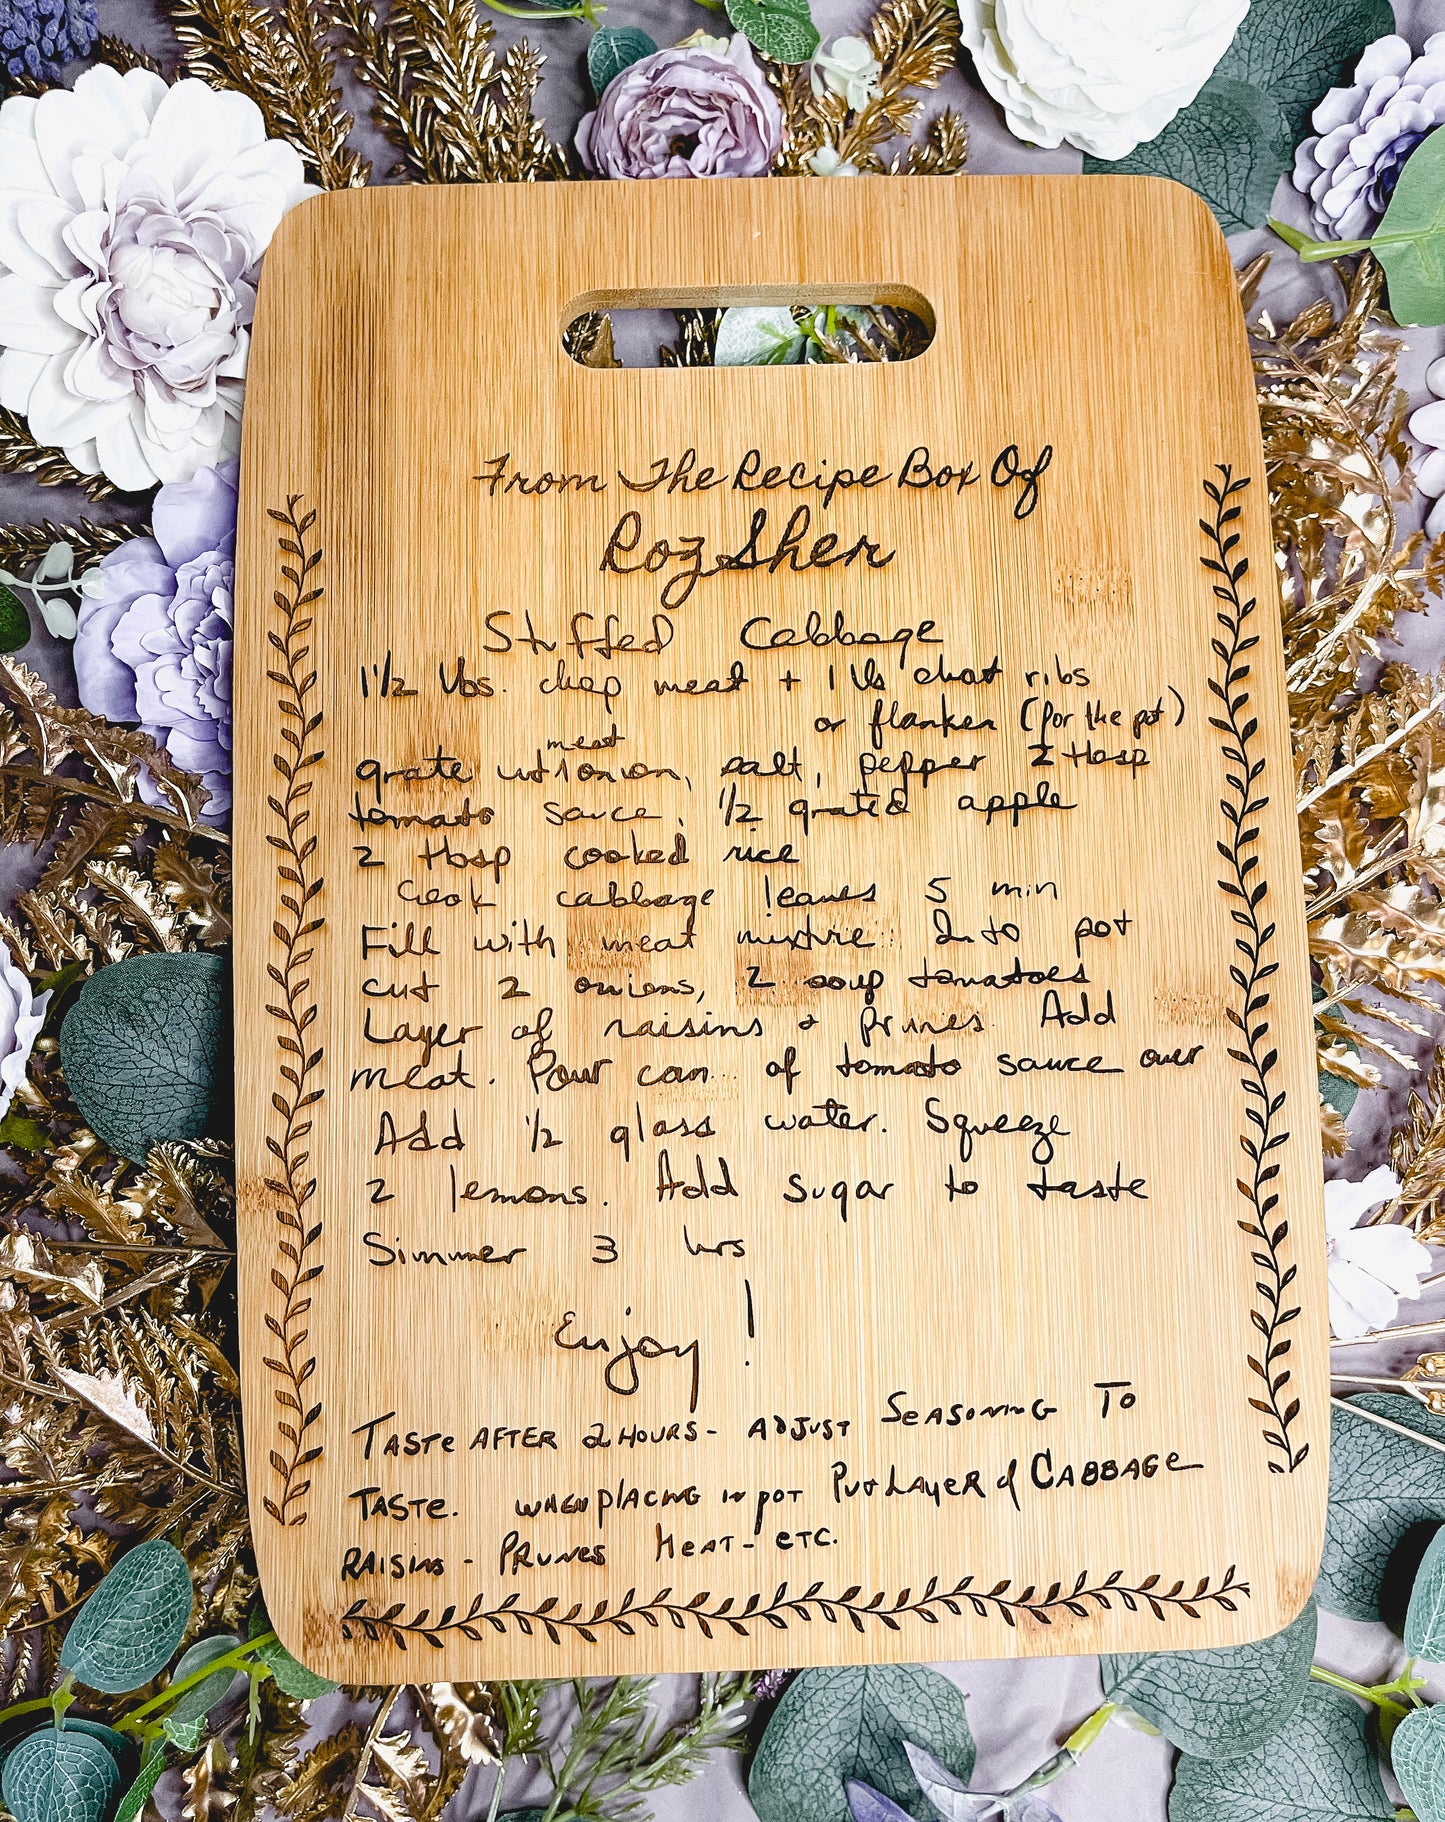 From The Recipe Box Of
Roz Sher
Stuffed Cabbage
1 1/2 lbs. chop meat + 1 lb chat ribs
or flanken (for the pot)
meat
grate onion, salt, pepper 2 tbsp
tomato sauce, 1/2 grated apple
2 tbsp cooked rice
Cook cabbage leaves 5 min
Fill with meat mixture Into pot
cut 2 onions, 2 soup tomatoes
Layer of raisins + prunes. Add
meat. Pour can of tomato sauce over
Add 1/2 glass water. Squeeze
2 lemons. Add sugar to taste
Simmer 3 hrs
Enjoy!
TASTe AFTER 2 HOURS - ADJUST SeASONING TO
TASTe. WHEN PlACING IN POT Put LAyeR of CABBAGe
RAISINS - PRUNeS MeAT - eTC.